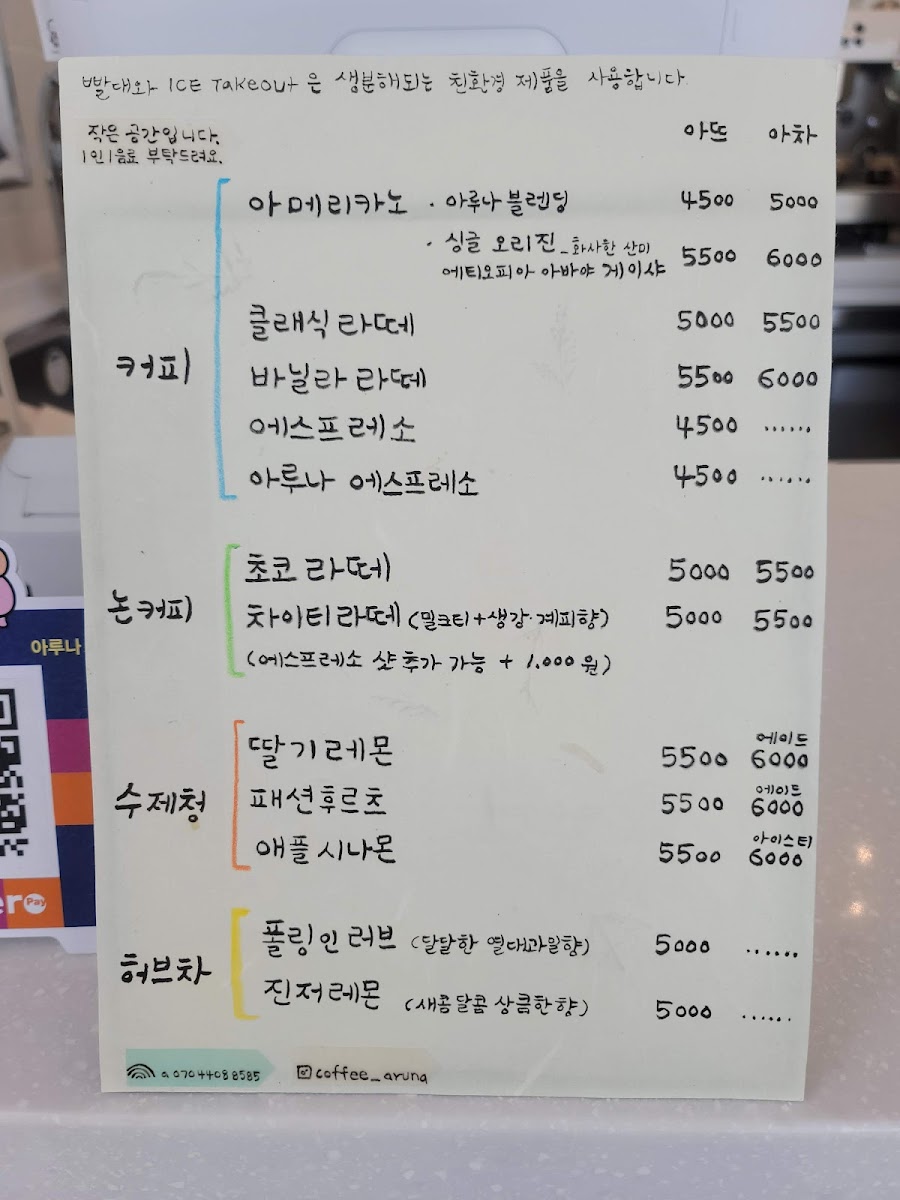 빨대와 ICE Takeout은 생분해되는 친환경 제품을 사용합니다.
작은 공간입니다.
1인1음료 부탁드려요.
아뜨 아차
커피
아메리카노 · 아루나 블렌딩 4500 5000
· 싱글 오리진_화사한 산미
에티오피아 아바야 게이샤 5500 6000
클래식 라떼 5000 5500
바닐라 라떼 5500 6000
에스프레소 4500 ······
아루나 에스프레소 4500 ······
논커피
초코 라떼 5000 5500
차이티 라떼 (밀크티+생강·계피향) 5000 5500
(에스프레소 샷 추가 가능 + 1.000원)
수제청
딸기레몬 5500 에이드 6000
패션후르츠 5500 에이드 6000
애플 시나몬 5500 아이스티 6000
허브차
폴링인러브 (달달한 열대과일향) 5000 ······
진저레몬 (새콤달콤 상큼한향) 5000 ······
a07044088585
coffee_aruna
아루나
ero Pay